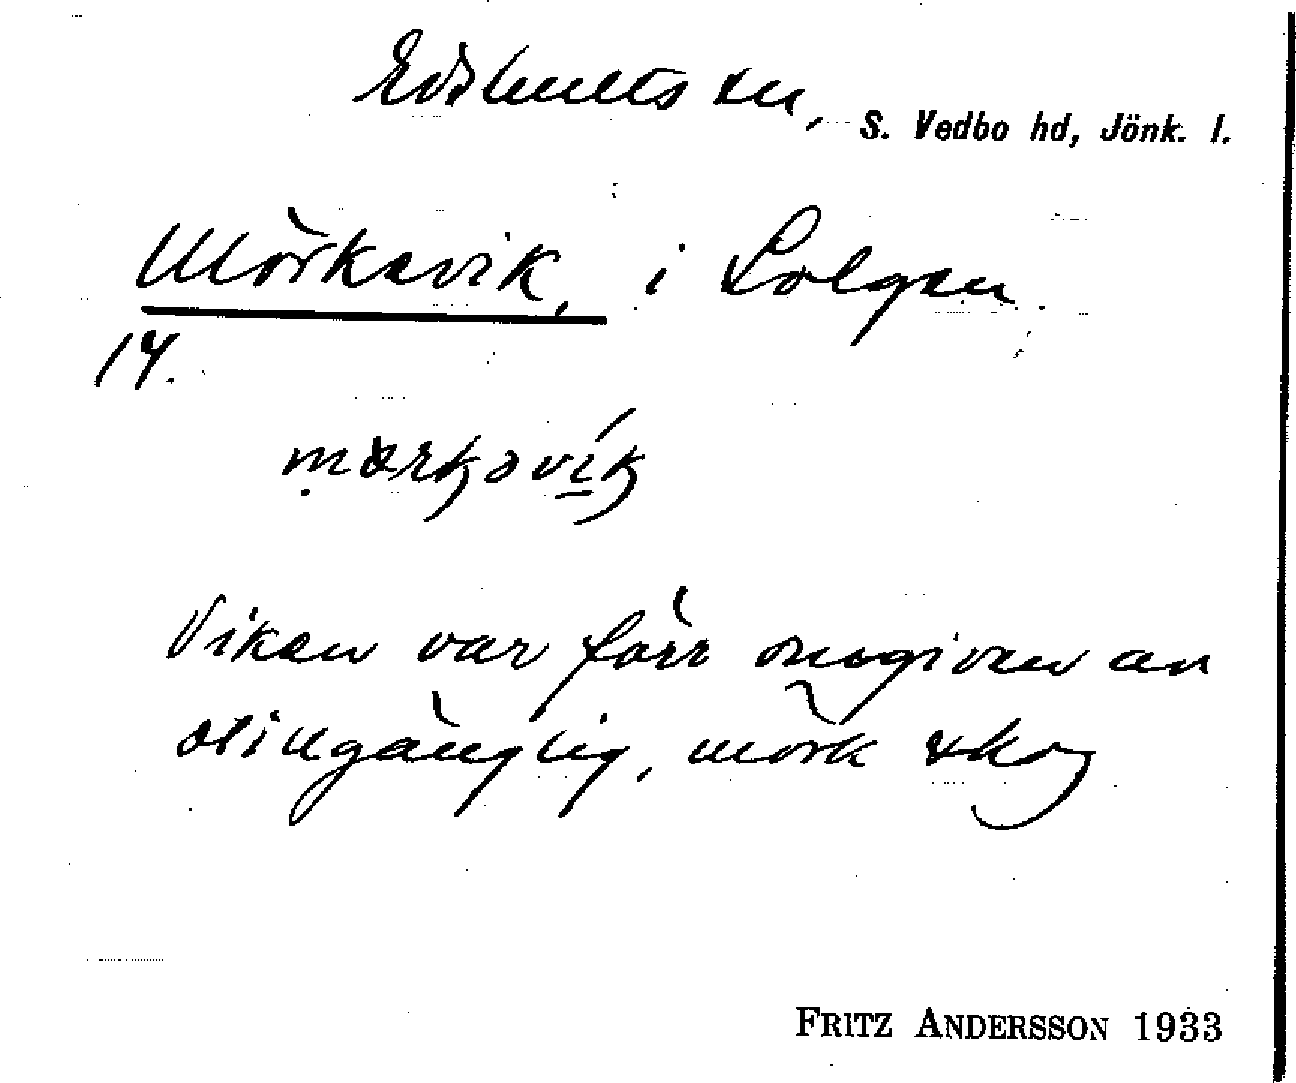 Edshults sn,
S. Vedbo hd, Jönk. l.
Mörkavik, i Solgen
14.
mörkavik
Viken var förr omgiven av
otillgänglig, mörk skog
FRITZ ANDERSSON 1933